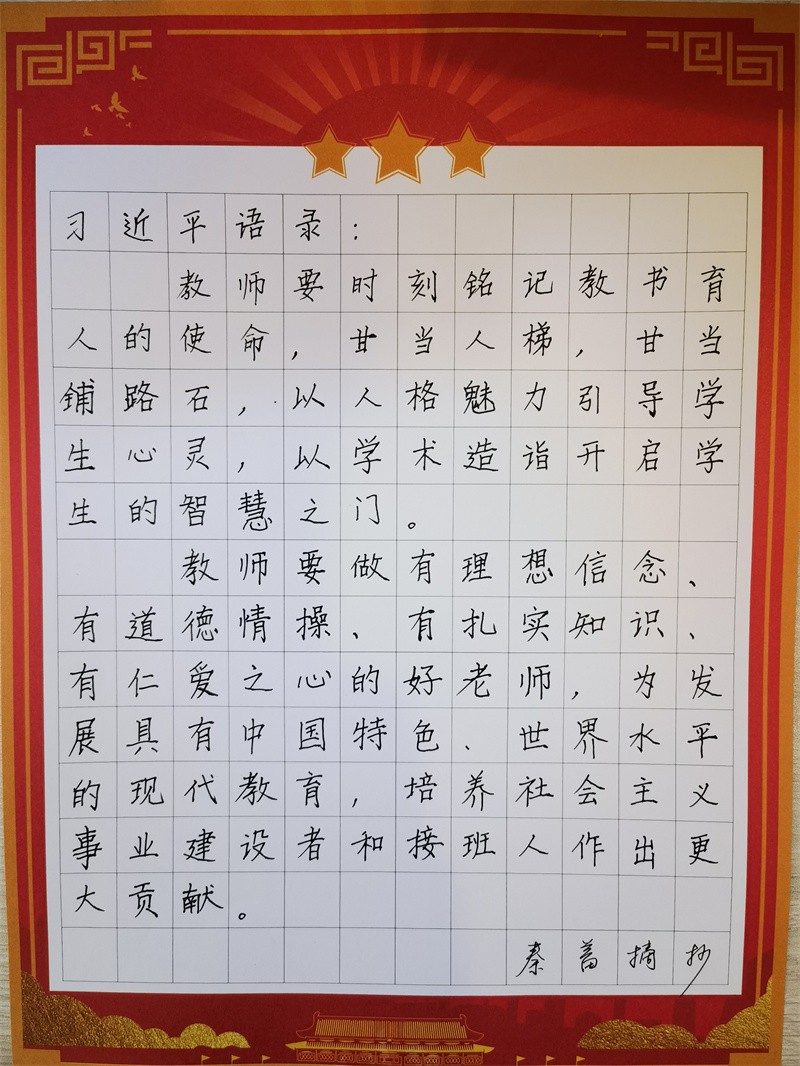 习近平语录：
教师要时刻铭记教书育
人的使命，甘当人梯，甘当
铺路石，以人格魅力引导学
生心灵，以学术造诣开启学
生的智慧之门。
教师要做有理想信念、
有道德情操、有扎实知识、
有仁爱之心的好老师，为发
展具有中国特色、世界水平
的现代教育，培养社会主义
事业建设者和接班人作出更
大贡献。
秦蓄摘抄